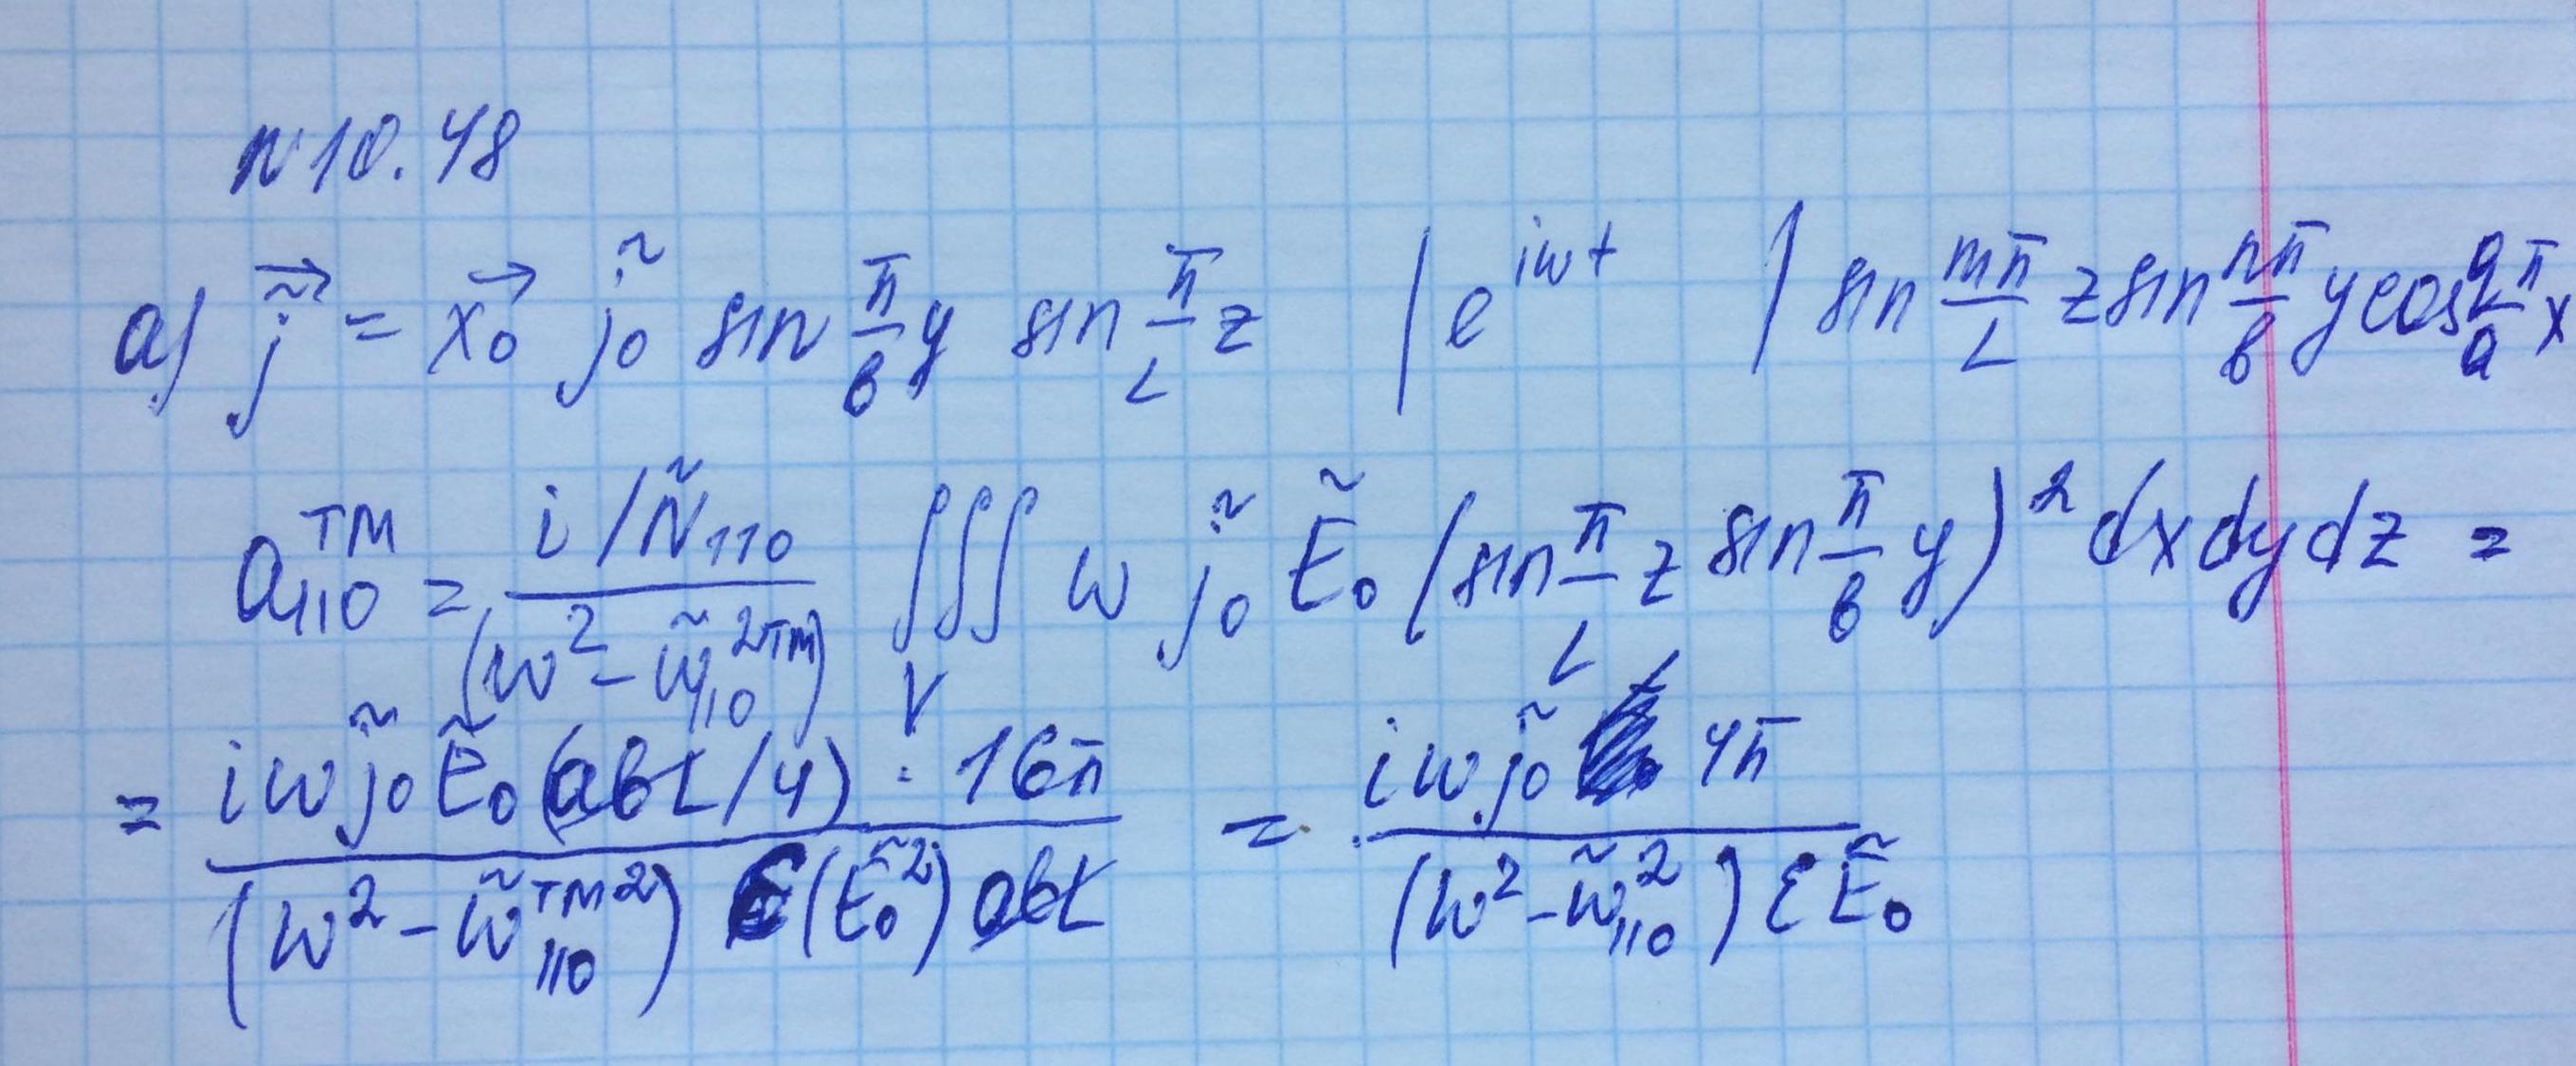 n 10.48
а) \vec{\tilde{j}} = \vec{x_0} \tilde{j}_0 sin \frac{π}{b} y sin \frac{π}{L} z | e^{iωt} | sin \frac{mπ}{L} z sin \frac{nπ}{b} y cos \frac{qπ}{a} x
a_{110}^{TM} = \frac{i / \tilde{N}_{110}}{(ω^2 - \tilde{ω}_{110}^{2 TM})} ∭_V ω \tilde{j}_0 \tilde{E}_0 (sin \frac{π}{L} z sin \frac{π}{b} y)^2 dx dy dz =
= \frac{i ω \tilde{j}_0 \tilde{E}_0 (abL/4) · 16π}{(ω^2 - \tilde{ω}_{110}^{TM 2}) ε (\tilde{E}_0^2) abL} = \frac{i ω \tilde{j}_0 4π}{(ω^2 - \tilde{ω}_{110}^2) ε \tilde{E}_0}